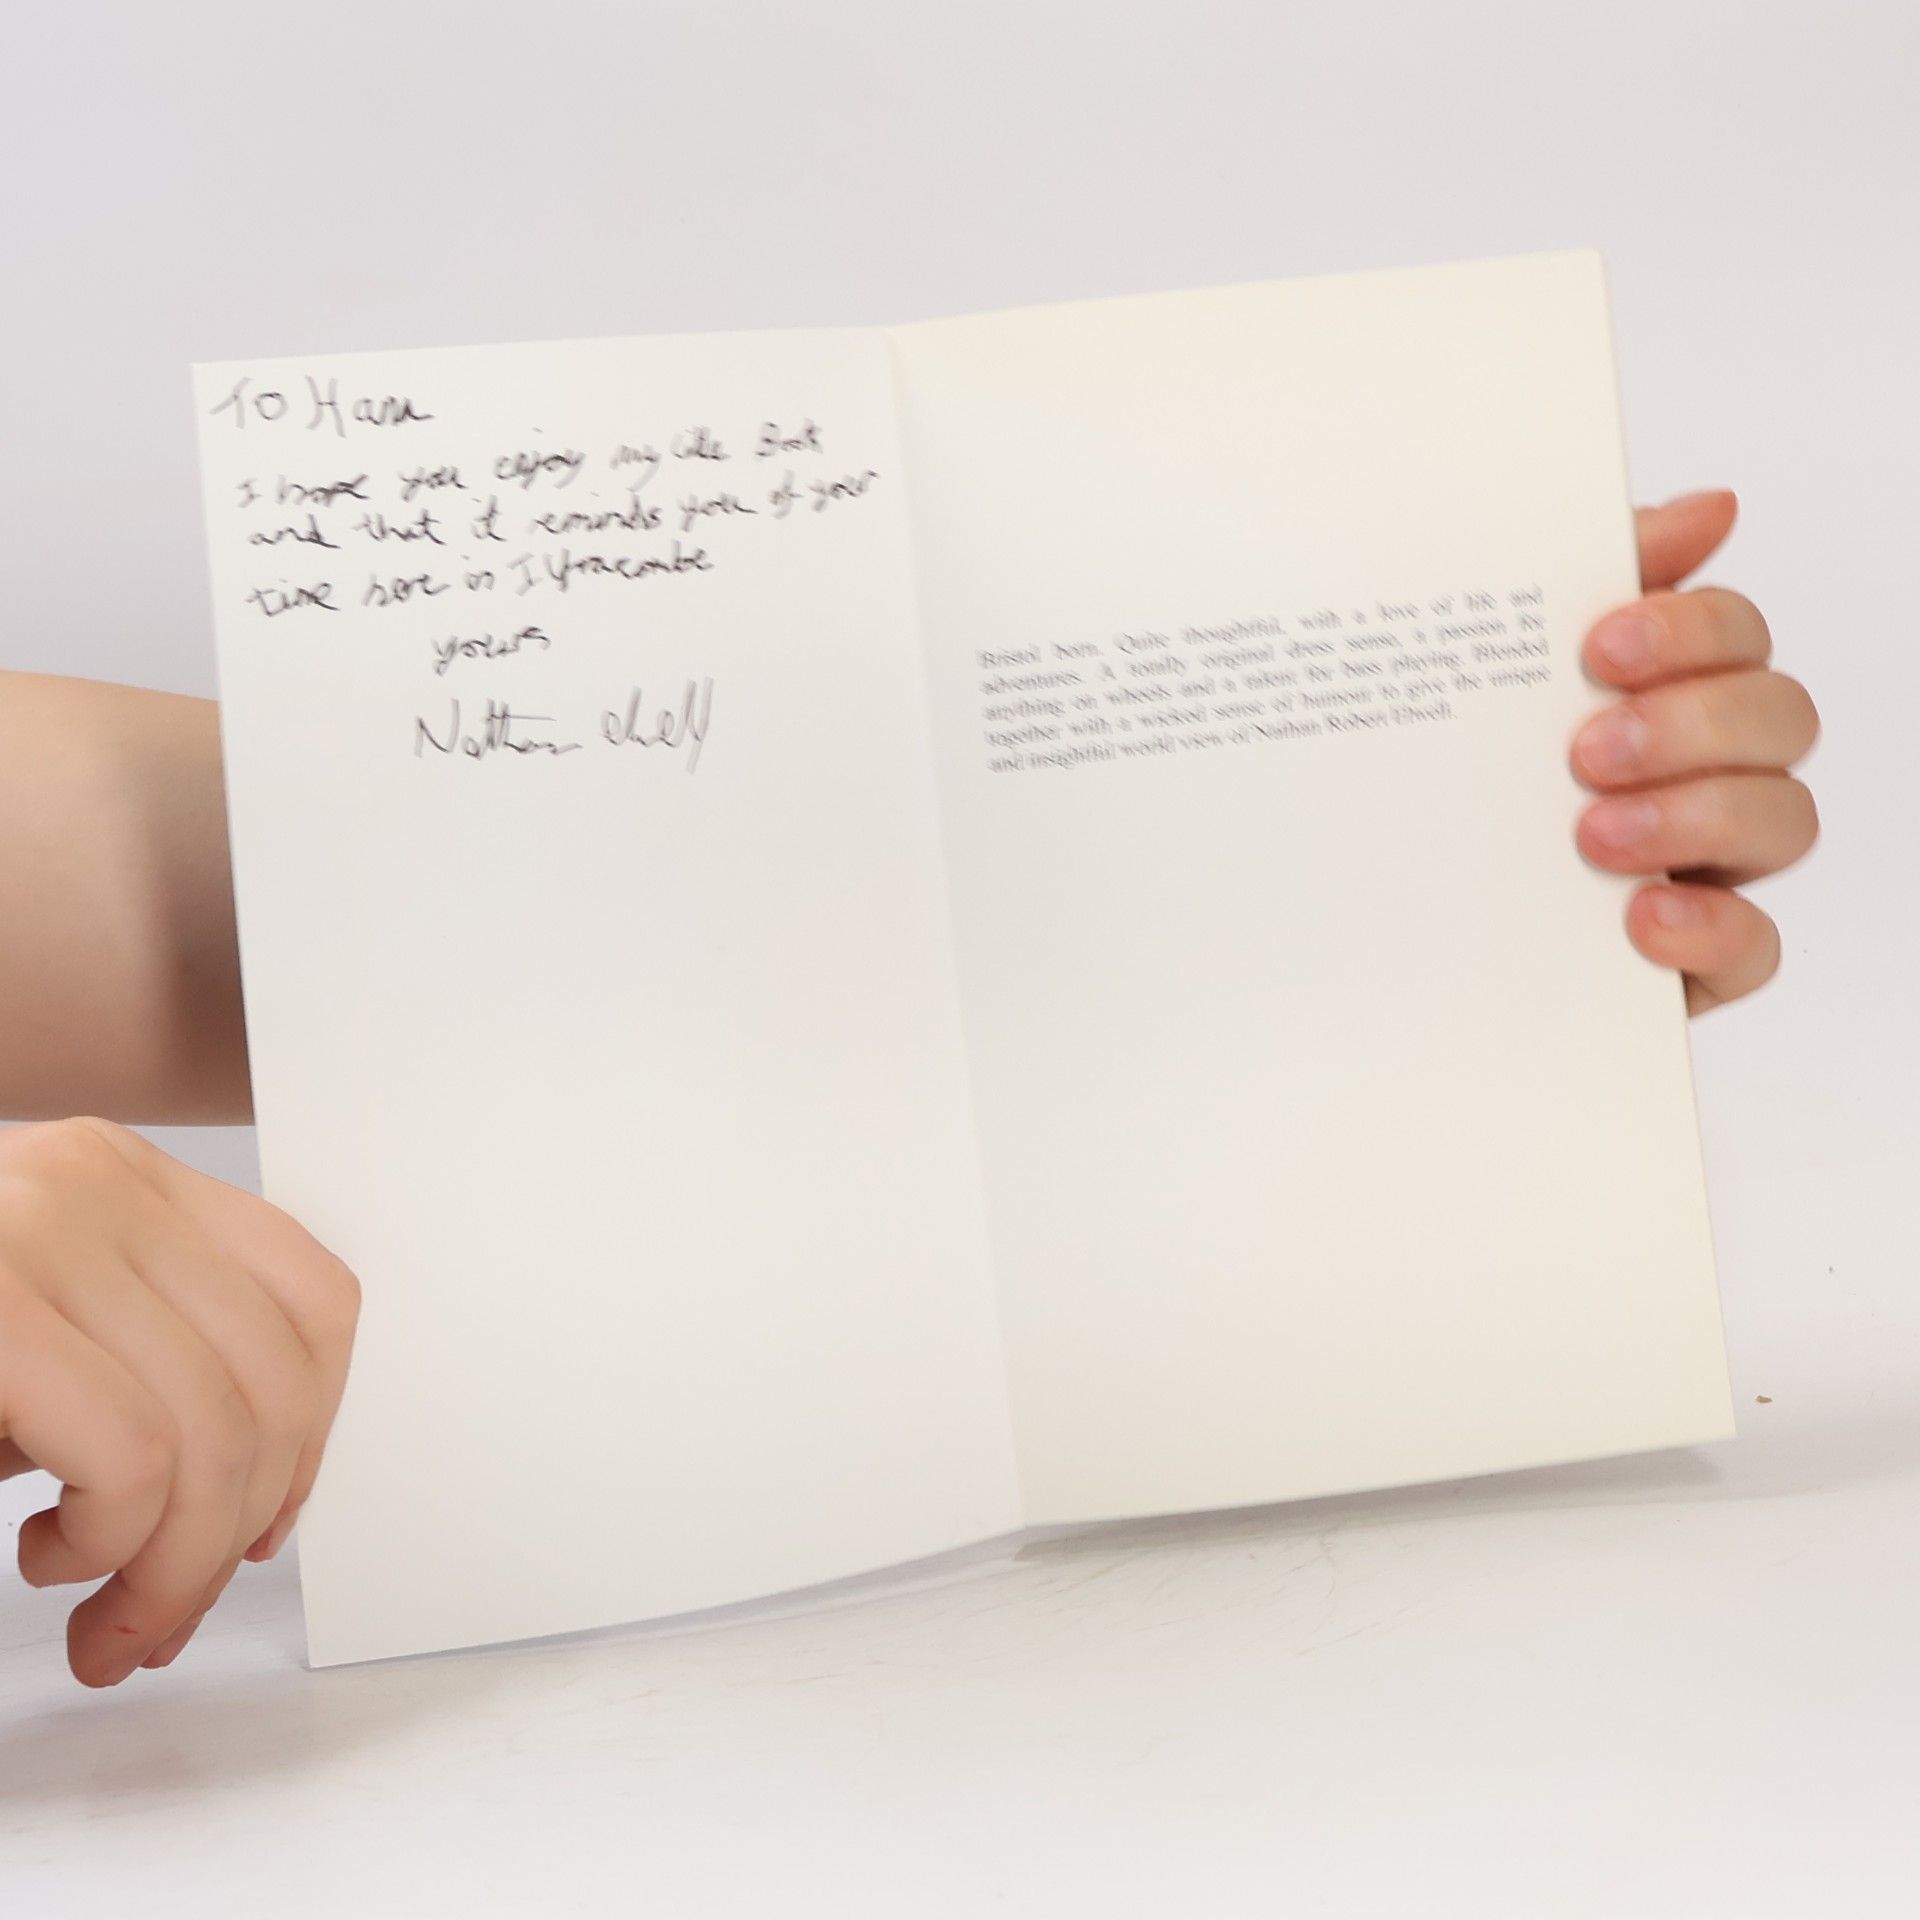 To Hann
I hope you enjoy my little Book
and that it reminds you of your
time here in Ilfracombe
yours
Nathan
Bristol born. Quite thoughtful, with a love of life and
adventures. A totally original dress sense, a passion for
anything on wheels and a talent for bass playing. Blended
together with a wicked sense of humour to give the unique
and insightful world view of Nathan Robert